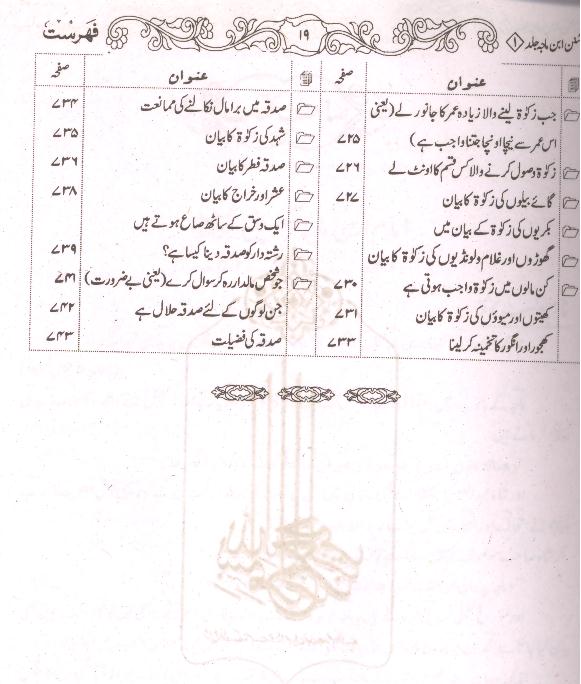 سنن ابن ماجہ جلد ۱
۱۹
فہرست
عنوان
صفحہ
جب زکوٰۃ لینے والا زیادہ عمر کا جانور لے (یعنی
اس عمر سے نیچا اونچا جتنا واجب ہے) ۷۲۵
زکوٰۃ وصول کرنے والا کس قسم کا اونٹ لے ۷۲۶
گائے بیلوں کی زکوٰۃ کا بیان ۷۲۷
بکریوں کی زکوٰۃ کے بیان میں
گھوڑوں اور غلام و لونڈیوں کی زکوٰۃ کا بیان
کن مالوں میں زکوٰۃ واجب ہوتی ہے ۷۳۰
کھیتوں اور میووں کی زکوٰۃ کا بیان ۷۳۱
کھجور اور انگور کا تخمینہ کر لینا ۷۳۳
عنوان
صفحہ
صدقہ میں برا مال نکالنے کی ممانعت ۷۳۴
شہد کی زکوٰۃ کا بیان ۷۳۵
صدقہ فطر کا بیان ۷۳۶
عشر اور خراج کا بیان ۷۳۸
ایک وسق کے ساٹھ صاع ہوتے ہیں
رشتہ دار کو صدقہ دینا کیسا ہے؟ ۷۳۹
جو شخص مالدار رہ کر سوال کرے (یعنی بے ضرورت) ۷۴۱
جن لوگوں کے لئے صدقہ حلال ہے ۷۴۲
صدقہ کی فضیلت ۷۴۳